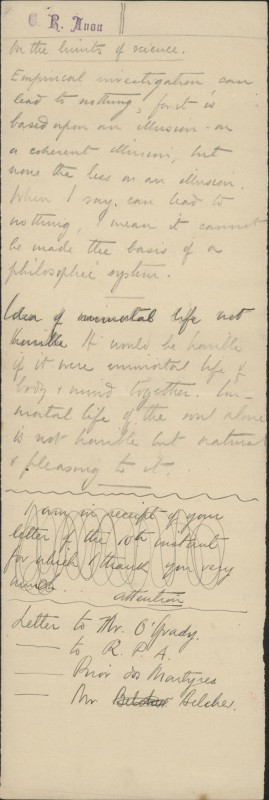 C. R. Anon
On the limits of science.
Empirical investigation can
lead to nothing, for it is
based upon an illusion - on
a coherent illusion, but
none the less on an illusion.
When I say, can lead to
nothing, I mean it cannot
be made the basis of a
philosophic system.
Idea of immortal life not
horrible. It would be horrible
if it were immortal life of
body & mind together. Im-
mortal life of the soul alone
is not horrible but natural
& pleasing to it.
I am in receipt of your
letter of the 10th instant
for which I thank you very
much.
attention
Letter to Mr. O'Grady.
— to R. P. A.
— Prior dos Martyres
— Mr Belcher Belcher.